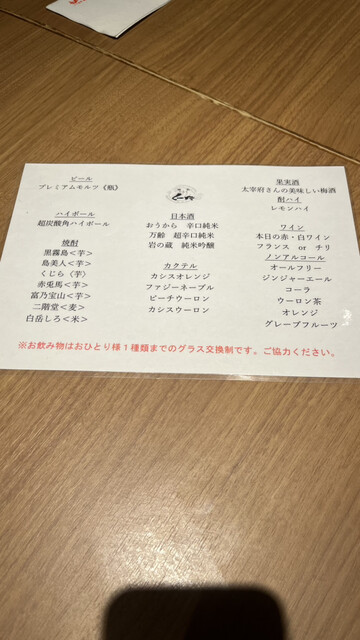 ビール
プレミアムモルツ《瓶》
ハイボール
超炭酸角ハイボール
焼酎
黒霧島＜芋＞
島美人＜芋＞
くじら〈芋〉
赤兎馬＜芋＞
富乃宝山＜芋＞
二階堂＜麦＞
白岳しろ＜米＞
日本酒
おうから　辛口純米
万齢　超辛口純米
岩の蔵　純米吟醸
カクテル
カシスオレンジ
ファジーネーブル
ピーチウーロン
カシスウーロン
果実酒
太宰府さんの美味しい梅酒
酎ハイ
レモンハイ
ワイン
本日の赤・白ワイン
フランス　or　チリ
ノンアルコール
オールフリー
ジンジャーエール
コーラ
ウーロン茶
オレンジ
グレープフルーツ
※お飲み物はおひとり様１種類までのグラス交換制です。ご協力ください。